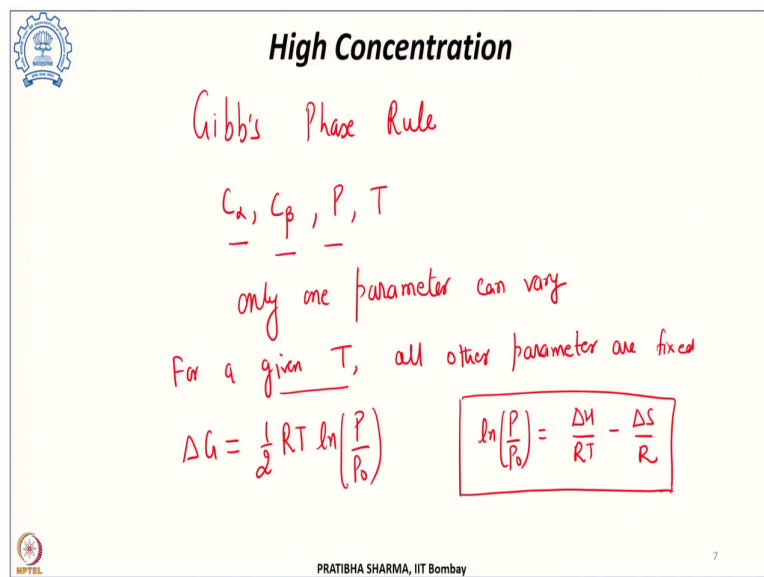 High Concentration
Gibb's Phase Rule
Cα, Cβ, P, T
only one parameter can vary
For a given T, all other parameter are fixed
ΔG = 1/2 RT ln(P/P₀)
ln(P/P₀) = ΔH/RT - ΔS/R
NPTEL
PRATIBHA SHARMA, IIT Bombay
7